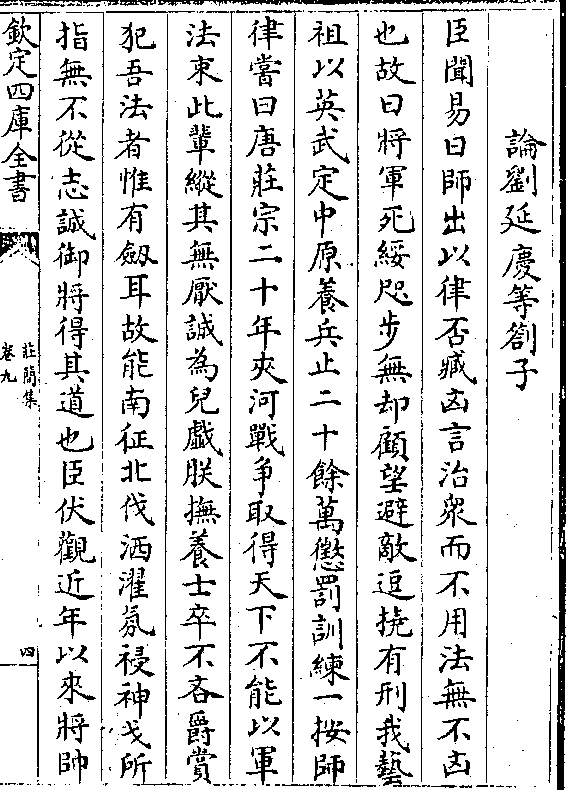 論劉延慶等劄子
臣聞易曰師出以律否臧凶言治衆而不用法無不凶
也故曰將軍死綏咫步無却顧望避敵逗撓有刑我藝
祖以英武定中原養兵止二十餘萬懲罰訓練一按師
律嘗曰唐莊宗二十年夾河戰爭取得天下不能以軍
法束此輩縱其無厭誠為兒戲朕撫養士卒不吝爵賞
犯吾法者惟有劔耳故能南征北伐洒濯氛祲神戈所
指無不從志誠御將得其道也臣伏觀近年以來將帥
欽定四庫全書
莊簡集
卷九
四